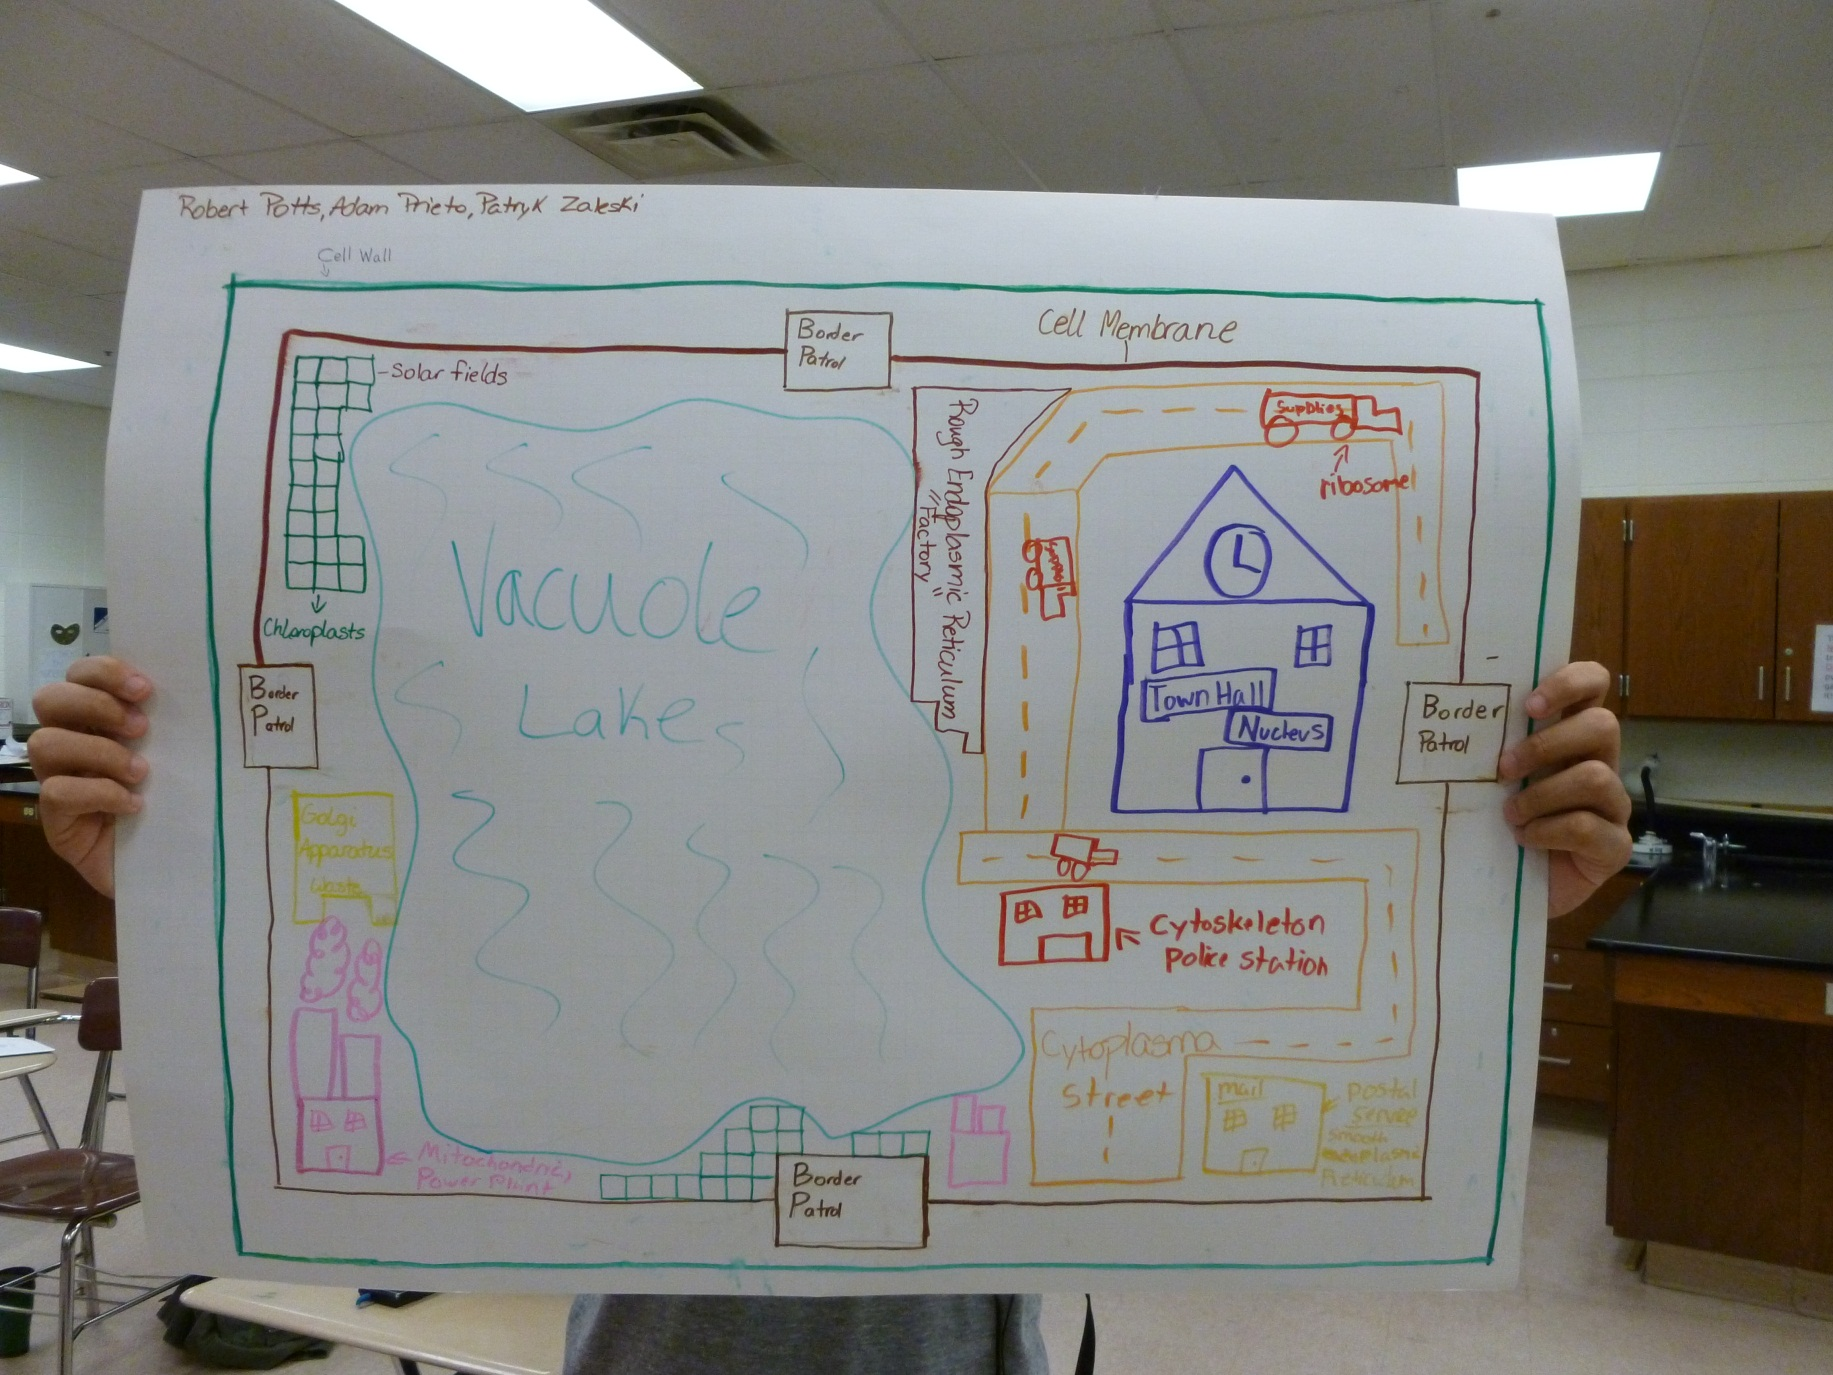 Robert Potts, Adam Prieto, Patryk Zaleski
Cell Wall
Border
Patrol
Cell Membrane
-Solar fields
Chloroplasts
Vacuole
Lakes
Rough Endoplasmic Reticulum
"Factory"
Supplies
ribosome
Town Hall
Nucleus
Border
Patrol
Border
Patrol
Golgi
Apparatus
Waste
Cytoskeleton
Police Station
Cytoplasma
Street
Mail
Postal
Service
Smooth
Reticulum
Mitochondria,
Power Plant
Border
Patrol